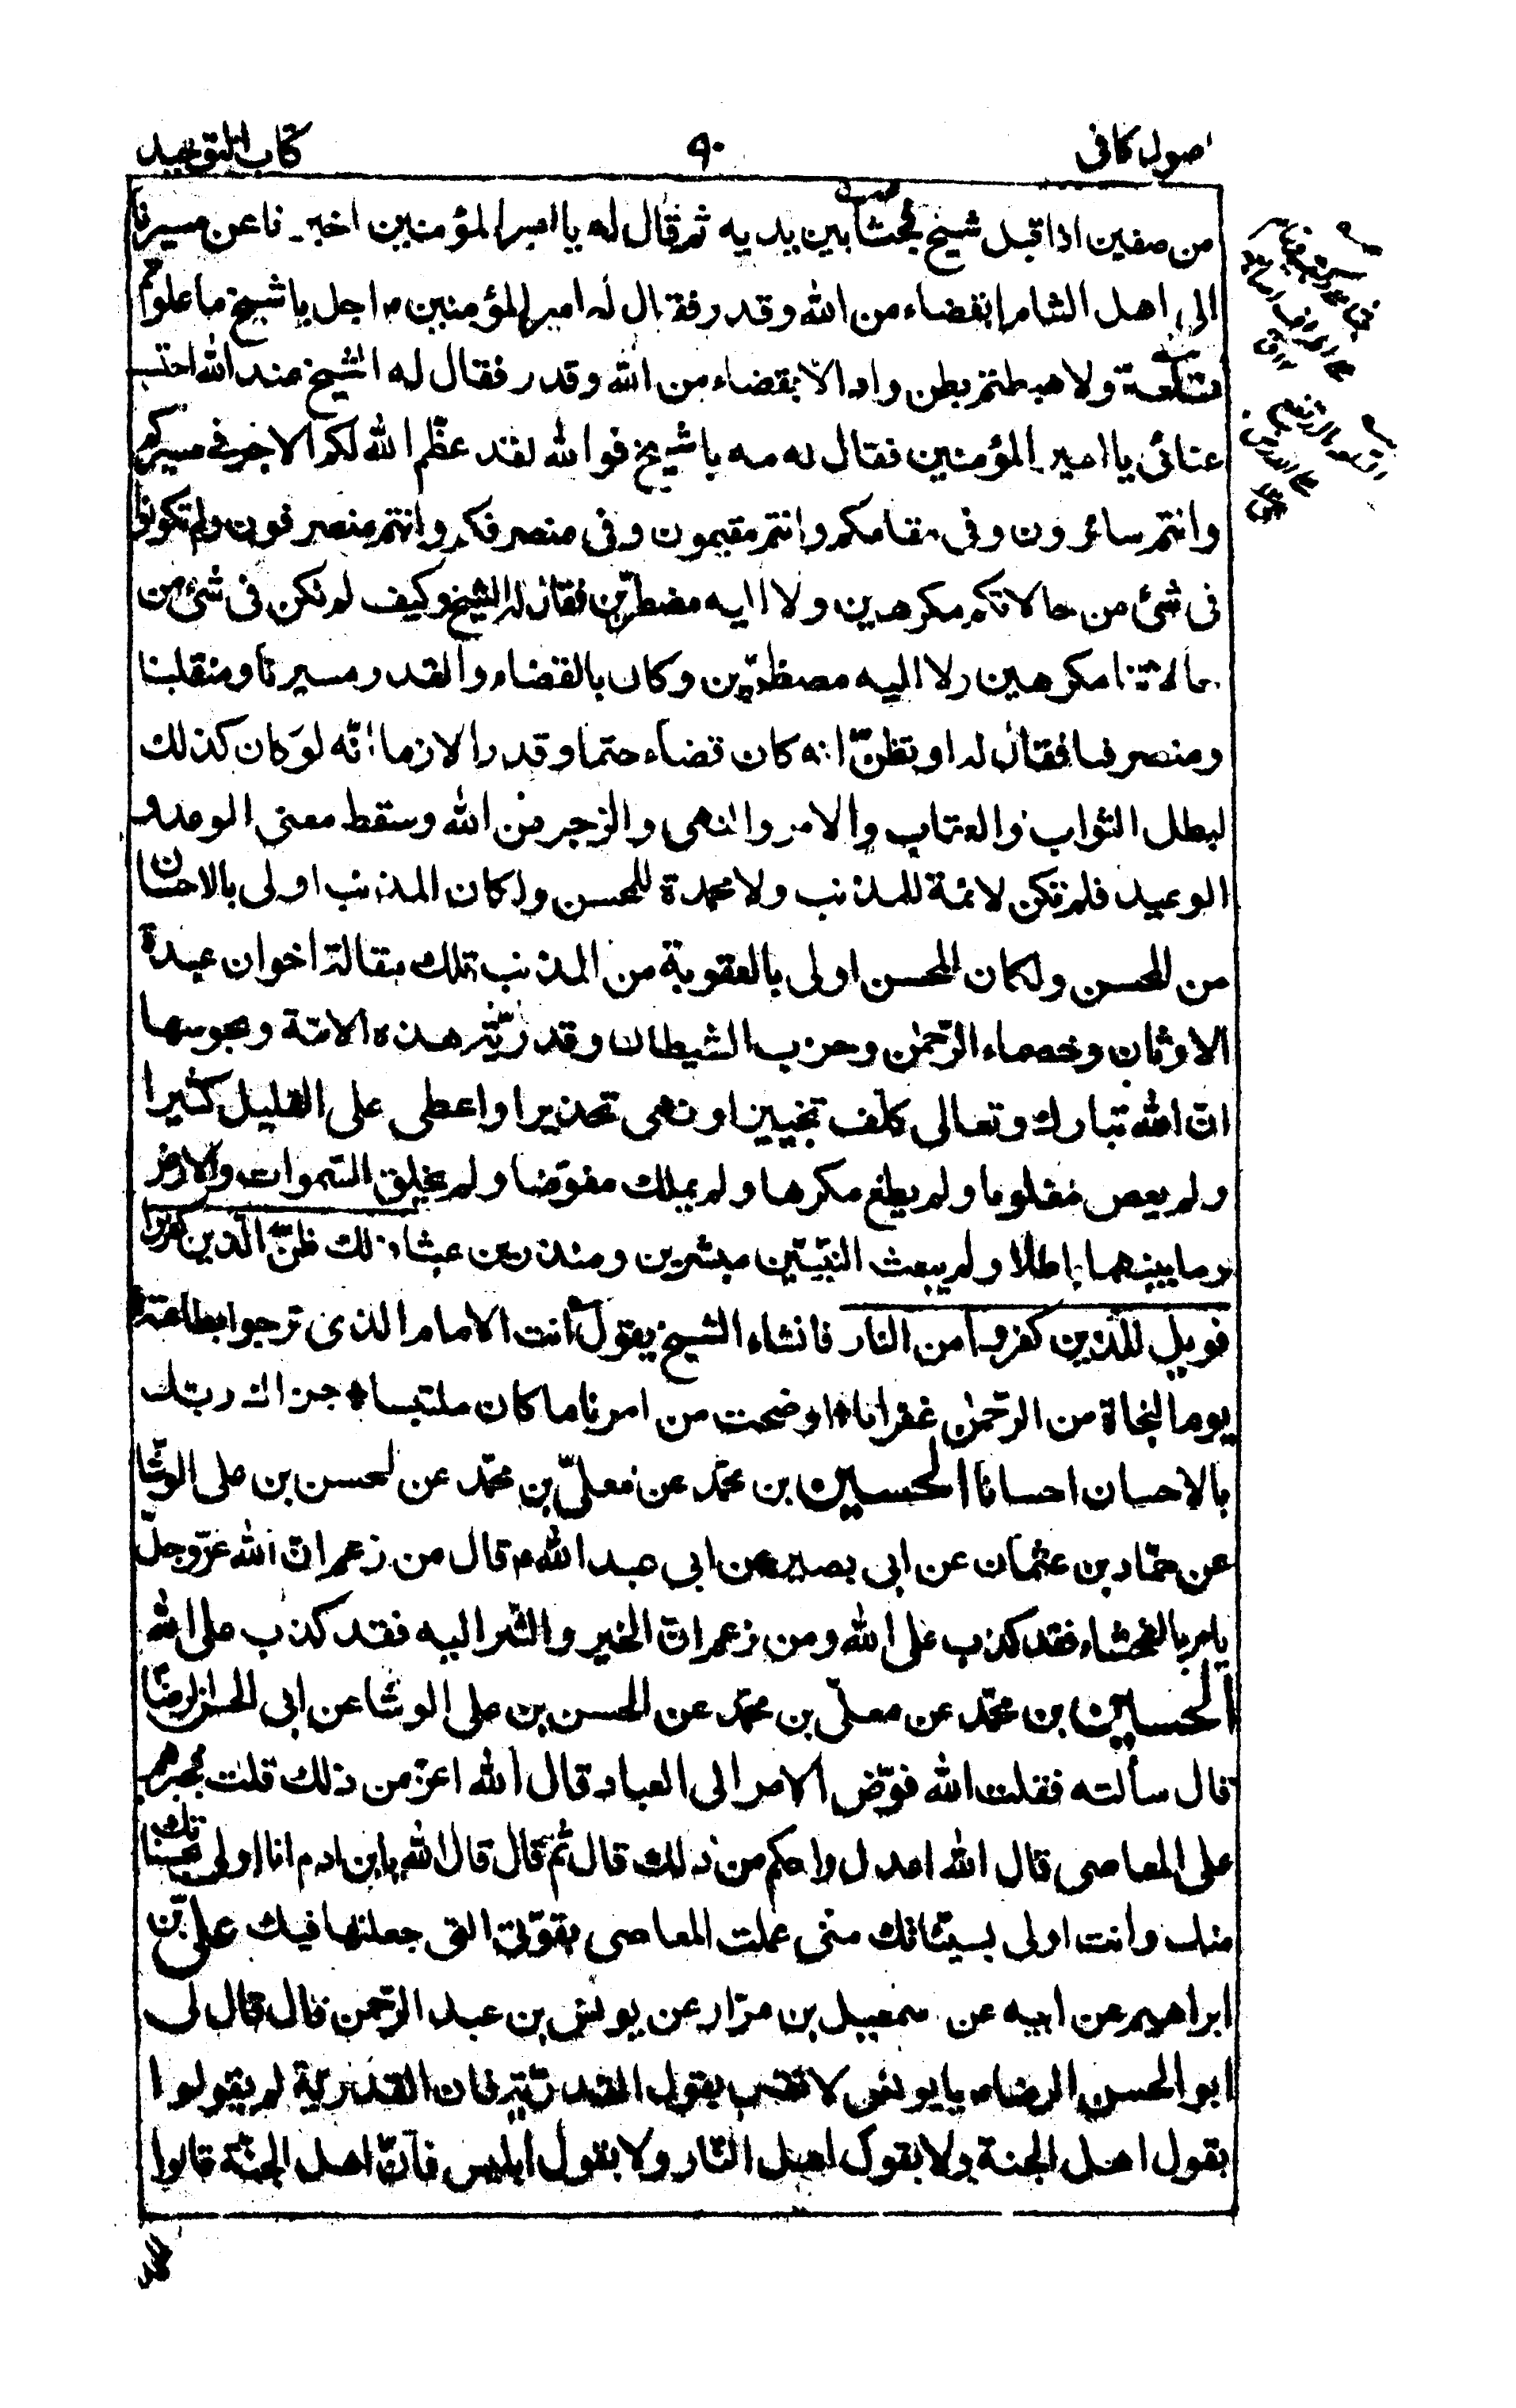 اصول كافى ٩٠ كتاب التوحيد
من صفين اذا قبل شيخ فجثا بين يديه ثم قال له يا امير المؤمنين اخبرنا عن مسيرنا
الى اهل الشام ابقضاء من الله وقدر فقال له امير المؤمنين ؏ اجل يا شيخ ما علوتم
تلعة ولا هبطتم بطن واد الا بقضاء من الله وقدر فقال له الشيخ عند الله احتسب
عنائى يا امير المؤمنين فقال له مه يا شيخ فو الله لقد عظّم الله لكم الاجر فى مسيركم
وانتم سائرون وفى مقامكم وانتم مقيمون وفى منصرفكم وانتم منصرفون ولم تكونوا
فى شئ من حالاتكم مكرهين ولا اليه مضطرّين فقال له الشيخ وكيف لم نكن فى شئ من
حالاتنا مكرهين ولا اليه مضطرّين وكان بالقضاء والقدر مسيرنا ومنقلبنا
ومنصرفنا فقال له او تظنّ انه كان قضاء حتما وقدرا لازما انّه لو كان كذلك
لبطل الثواب والعقاب والامر والنهى والزجر من الله وسقط معنى الوعد و
الوعيد فلم تكن لائمة للمذنب ولا محمدة للمحسن ولكان المذنب اولى بالاحسان
من المحسن ولكان المحسن اولى بالعقوبة من المذنب تلك مقالة اخوان عبدة
الاوثان وخصماء الرّحمٰن وحزب الشيطان وقدريّة هذه الامّة ومجوسها
انّ الله تبارك وتعالى كلّف تخييرا ونهى تحذيرا واعطى على القليل كثيرا
ولم يعص مغلوبا ولم يطع مكرها ولم يملك مفوّضا ولم يخلق السّموات والارض
وما بينهما باطلا ولم يبعث النبيّين مبشرين ومنذرين عبثا ذلك ظنّ الّذين كفروا
فويل للّذين كفروا من النار فانشاء الشيخ يقول انت الامام الذى ترجوا بطاعته
يوم النجاة من الرّحمٰن غفرانا * اوضحت من امرنا ما كان ملتبسا * جزاك ربّك
بالاحسان احسانا الحسين بن محمّد عن معلّى بن محمّد عن الحسن بن على الوشّا
عن حمّاد بن عثمان عن ابى بصير عن ابى عبد الله ؏ قال من زعم انّ الله عزّوجلّ
يامر بالفحشاء فقد كذب على الله ومن زعم انّ الخير والشّر اليه فقد كذب على الله
الحسين بن محمّد عن معلّى بن محمّد عن الحسن بن على الوشا عن ابى الحسن الرضا
قال سألته فقلت الله فوّض الامر الى العباد قال الله اعزّ من ذلك قلت فجبرهم
على المعاصى قال الله اعدل واحكم من ذلك قال ثمّ قال قال الله يا بن ادم انا اولى بحسناتك
منك وانت اولى بسيّئاتك منّى عملت المعاصى بقوّتى التى جعلتها فيك على بن
ابراهيم عن ابيه عن سمعيل بن مرّار عن يونس بن عبد الرّحمن قال قال لى
ابو الحسن الرضا ؏ يا يونس لا تقل بقول القدريّة فان القدريّة لم يقولوا
بقول اهل الجنة ولا بقول اهل النّار ولا بقول ابليس فانّ اهل الجنّة قالوا